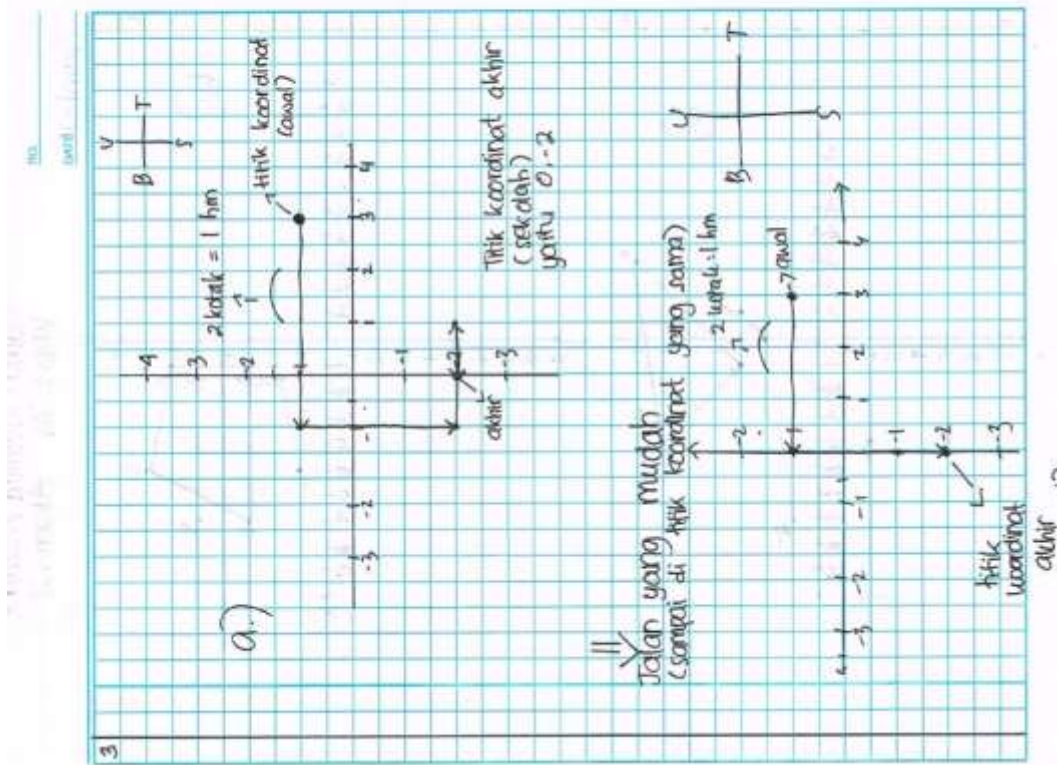 NO.
DATE
3
a.)
2 kotak = 1 hm
U
B T
S
titik koordinat
(awal)
4
3
2
1
-3 -2 -1 1 2 3 4
-1
-2
-3
akhir
Titik koordinat akhir
(sekolah)
yaitu 0,-2
Jalan yang mudah
(sampai di titik koordinat yang sama)
2 kotak = 1 hm
U
B T
S
2
1
awal
-3 -2 -1 1 2 3 4
-1
-2
-3
titik
koordinat
akhir